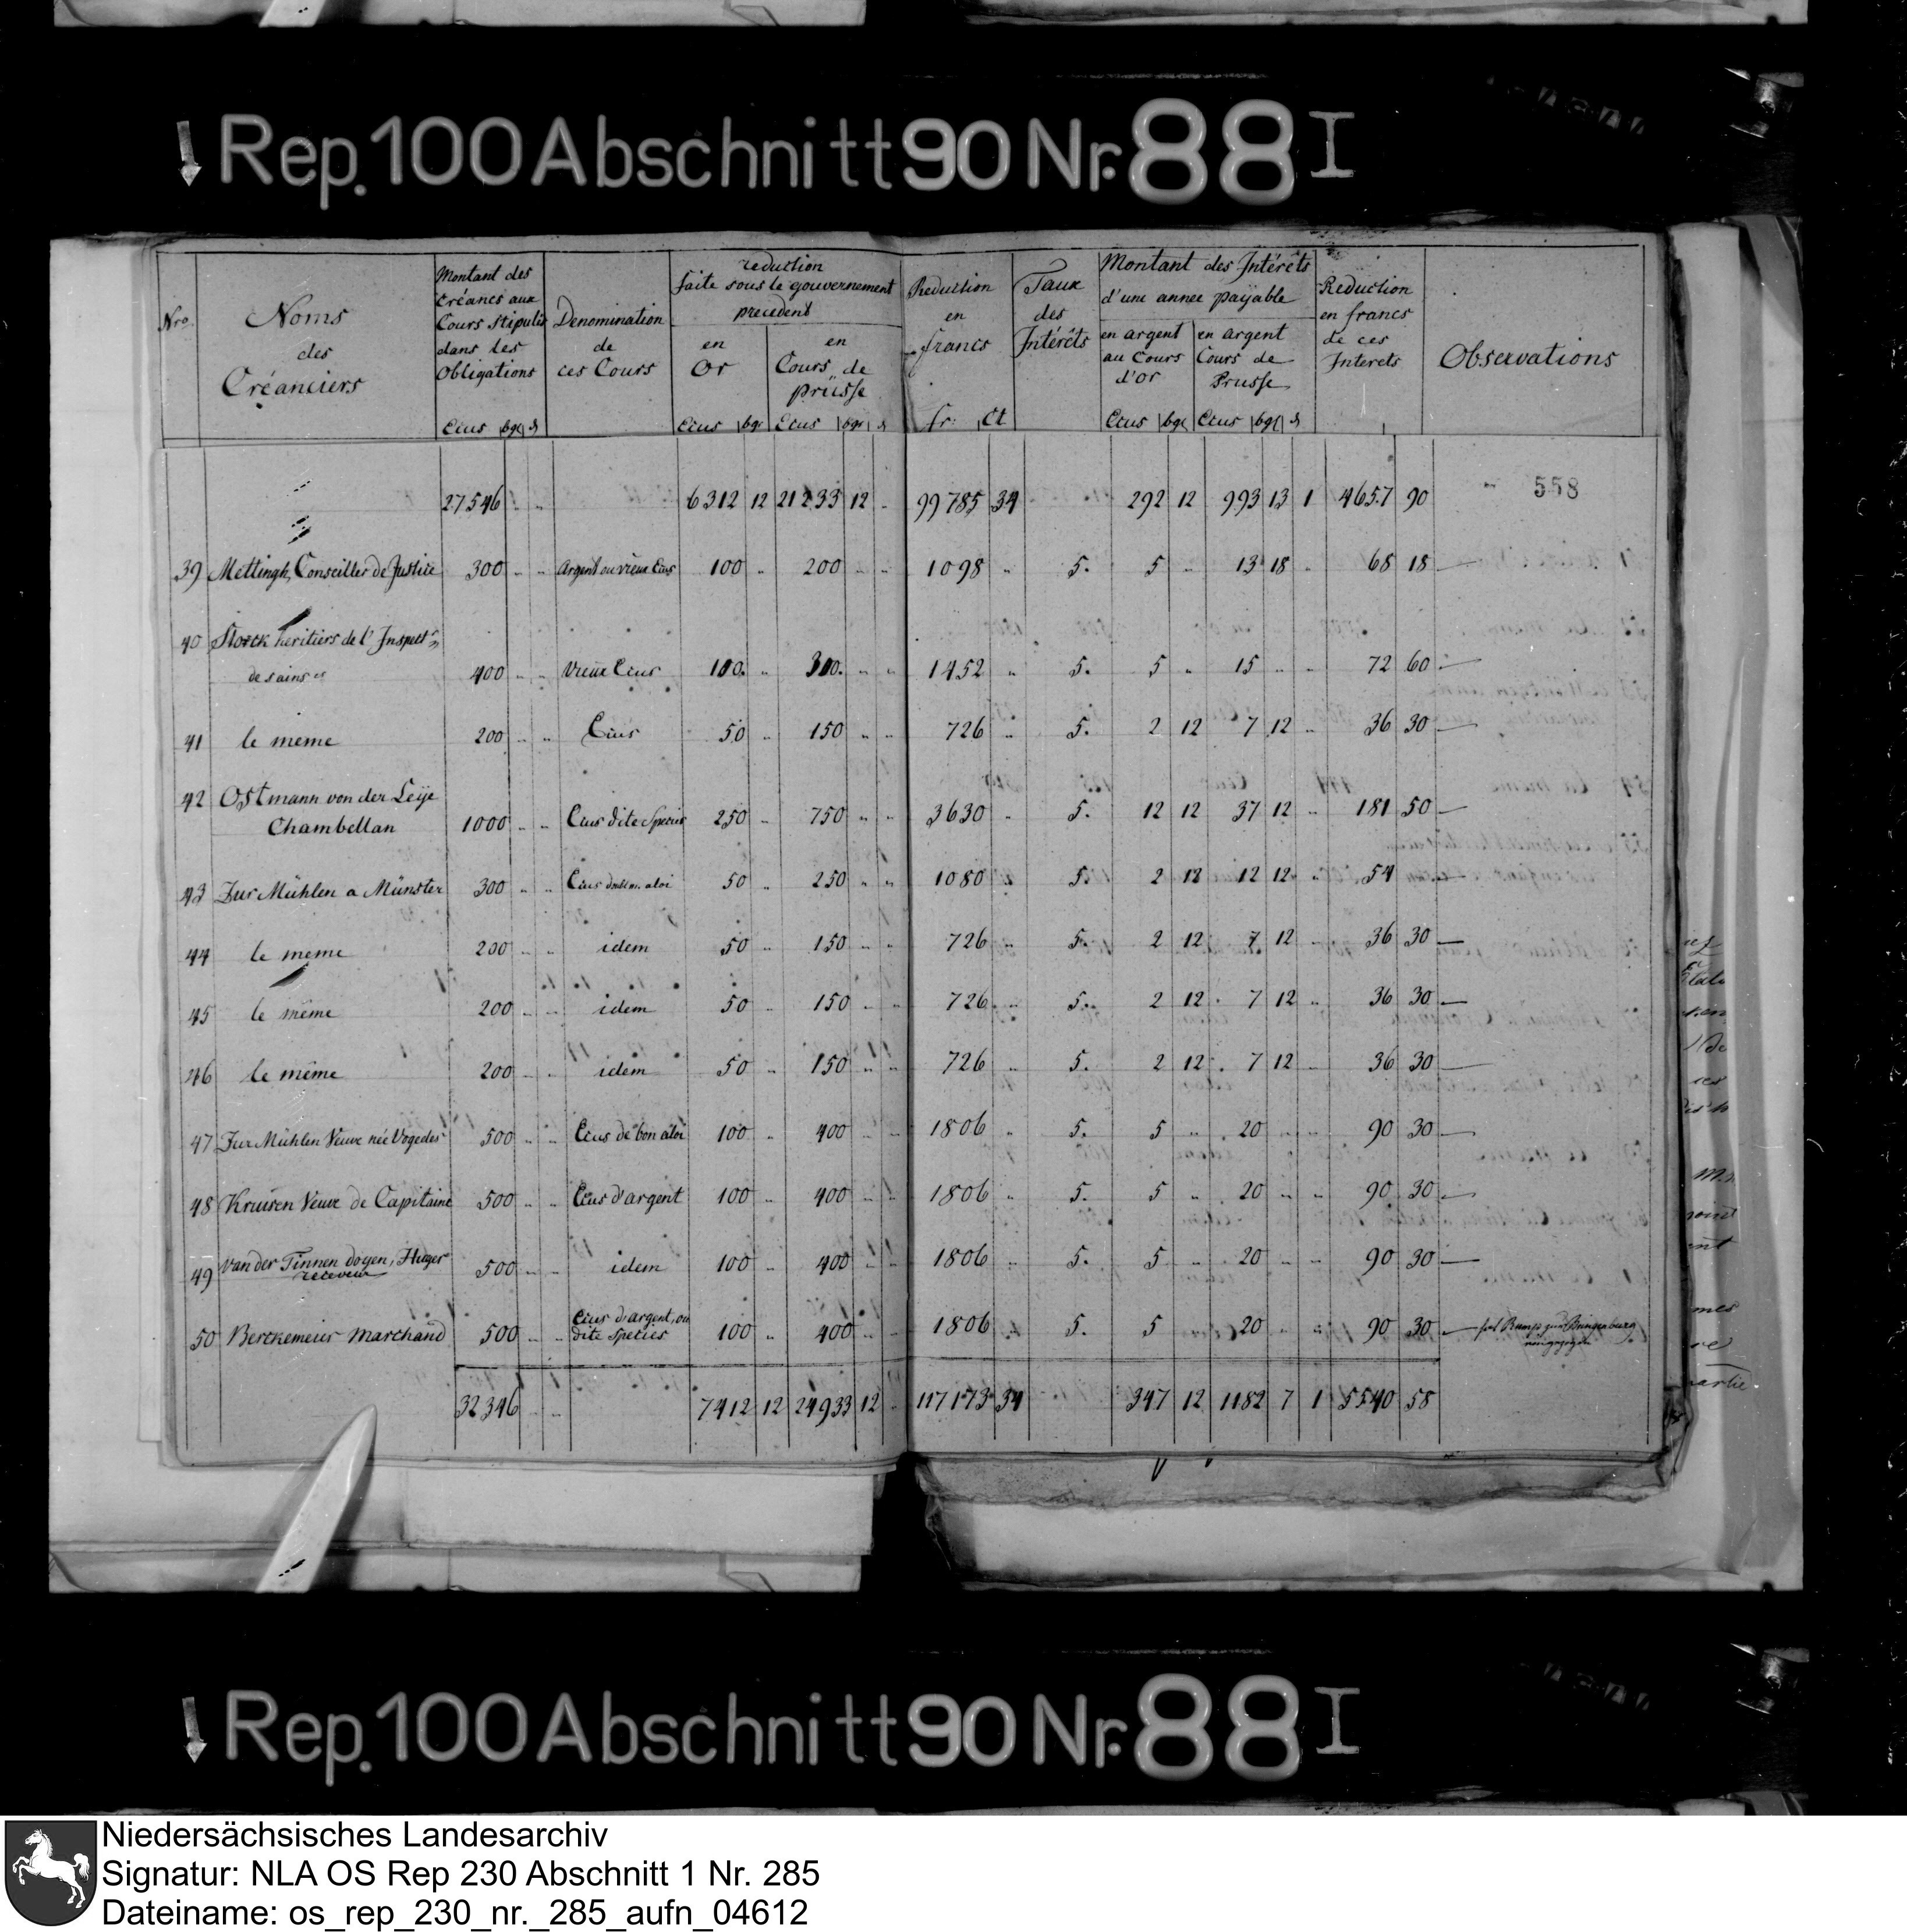 Rep. 100 Abschnitt 90 Nr. 88 I
Nro.
Noms
des
Créanciers
Montant des
Créances aux
Cours stipulés
dans les
Obligations
Ecus bgs d
Denomination
de
ces Cours
reduction
faite sous le gouvernement
precedent
en
Or
Ecus bgs
en
Cours de
prusse
Ecus bgs d
Reduction
en
francs
fr: Ct
Taux
des
Intérêts
Montant des Intérêts
d'une annee payable
en argent
au Cours
d'or
Ecus bgs
en argent
Cours de
Prusse
Ecus bgs d
Reduction
en francs
de ces
Interets
Observations
27546 .. .. 6312 12 21233 12 .. 99785 34 292 12 993 13 1 4657 90 558
39 Mettingh, Conseiller de Justice 300 .. .. argent ou vieux Ecus 100 .. 200 .. .. 1098 .. 5. 5 .. 13 18 .. 68 18 —
40 Storck heritiers de l'Inspect.r
desains 400 .. .. vieux Ecus 100. .. 300. .. .. 1452 .. 5. 5 .. 15 .. .. 72 60 —
41 le meme 200 .. .. Ecus 50 .. 150 .. .. 726 .. 5. 2 12 7 12 .. 36 30 —
42 Ostmann von der Leije
Chambellan 1000 .. .. Ecus dite Species 250 .. 750 .. .. 3630 .. 5. 12 12 37 12 .. 181 50 —
43 Zur Mühlen a Münster 300 .. .. Ecus de bon aloi 50 .. 250 .. .. 1080 .. 5. 2 12 12 12 .. 54 .. —
44 le meme 200 .. .. idem 50 .. 150 .. .. 726 .. 5. 2 12 7 12 .. 36 30 —
45 le même 200 .. .. idem 50 .. 150 .. .. 726 .. 5. 2 12 7 12 .. 36 30 —
46 le même 200 .. .. idem 50 .. 150 .. .. 726 .. 5. 2 12 7 12 .. 36 30 —
47 Zur Mühlen Veuve née Vogedes 500 .. .. Ecus de bon aloi 100 .. 400 .. .. 1806 .. 5. 5 .. 20 .. .. 90 30 —
48 Kruisen Veuve de Capitaine 500 .. .. Ecus d'argent 100 .. 400 .. .. 1806 .. 5. 5 .. 20 .. .. 90 30 —
49 van der Tinnen doyen, Huger
receveur 500 .. .. idem 100 .. 400 .. .. 1806 .. 5. 5 .. 20 .. .. 90 30 —
50 Berckemeier marchand 500 .. .. Ecus d'argent, ou
dite species 100 .. 400 .. .. 1806 .. 5. 5 .. 20 .. .. 90 30 —
32346 .. .. 7412 12 24933 12 .. 117173 34 347 12 1182 7 1 5540 58
Rep. 100 Abschnitt 90 Nr. 88 I
Niedersächsisches Landesarchiv
Signatur: NLA OS Rep 230 Abschnitt 1 Nr. 285
Dateiname: os_rep_230_nr._285_aufn_04612